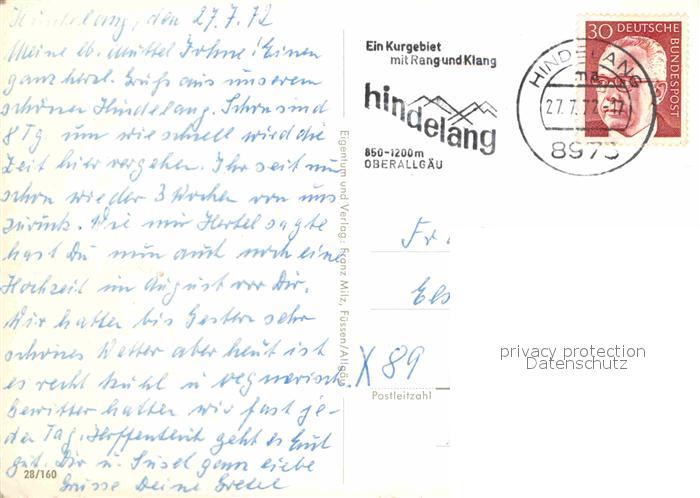 Hindelang, den 27.7.72
Meine lb. Muttel Irhne! Einen
ganz herzl. Gruß aus unserem
schönen Hindelang. Schon sind
8 Tg um wie schnell wird die
Zeit hier vergehen. Ihr seit nun
schon wieder 3 Wochen von uns
zurück. Wie mir Hertel sagte
hast Du nun auch noch eine
Hochzeit im August vor Dir.
Wir hatten bis Gestern sehr
schönes Wetter aber heut ist
es recht kühl u regnerisch.
Gewitter hatten wir fast je-
den Tag. Hoffentlich geht es Euch
gut. Dir u. Susel ganz liebe
Grüsse Deine Gretel
28/160
Eigentum und Verlag: Franz Milz, Füssen/Allgäu
Ein Kurgebiet
mit Rang und Klang
hindelang
850-1200m
OBERALLGÄU
HINDELANG
27.7.72-17
8973
30 DEUTSCHE
BUNDESPOST
Fr
Els
X 89
Postleitzahl
privacy protection
Datenschutz